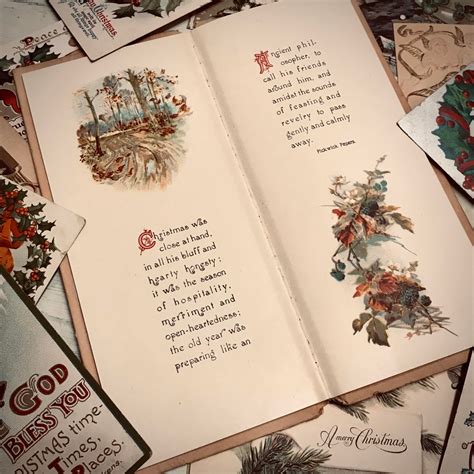 Christmas was
close at hand,
in all his bluff and
hearty honesty;
it was the season
of hospitality,
merriment and
open-heartedness;
the old year was
preparing like an
Ancient phil
osopher, to
call his friends
around him, and
amidst the sounds
of feasting and
revelry to pass
gently and calmly
away.
Pickwick Papers.
Christmas
Peace
GOD
BLESS YOU
CHRISTMAS time-
Times,
Places.
A merry Christmas.